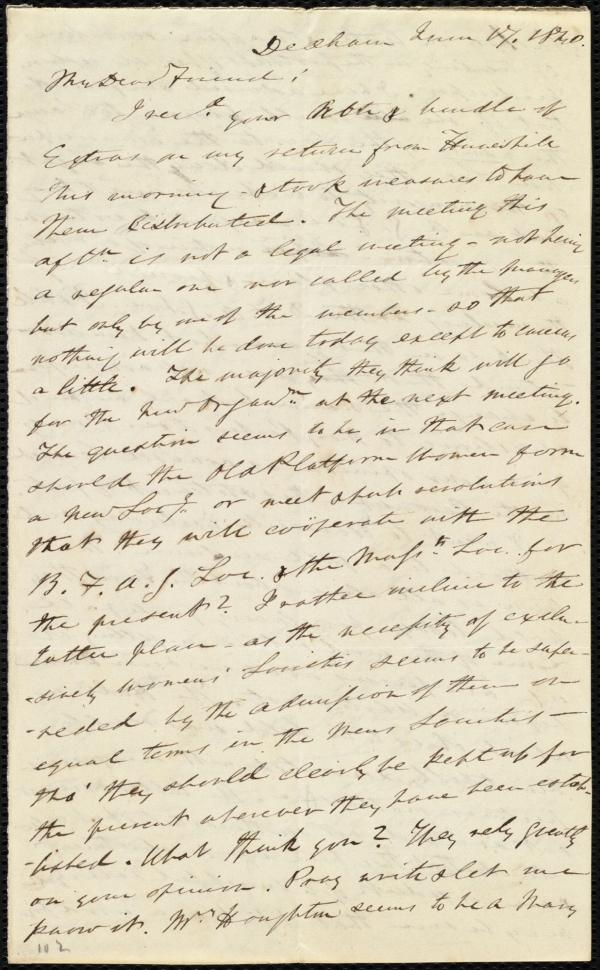 Dedham June 17. 1840.
My Dear Friend!
I rec.d your note & bundle of
Extras on my return from Haverhill
this morning - & took measures to have
them distributed. The meeting this
aftn is not a legal meeting - not being
a regular one nor called by the Managers
but only by one of the members - so that
nothing will be done today except to
a little. The majority they think will go
for the New Organn at the next meeting.
The question seems to be, in that case
should the Old Platform Women form
a new Socy. or meet & pub resolutions
that they will coöperate with the
B. F. A. S. Soc. & the Masstts Soc. for
the present? I rather incline to the
latter plan - as the necessity of exclu-
-sively womens' Societies seems to be super-
-seded by the admission of them on
equal terms in the Mens Societies -
tho' they should clearly be kept up for
the present wherever they have been estab-
-lished. What think you? They rely greatly
on your opinion. Pray write & let me
know it. Mrs Houghton seems to be a
102